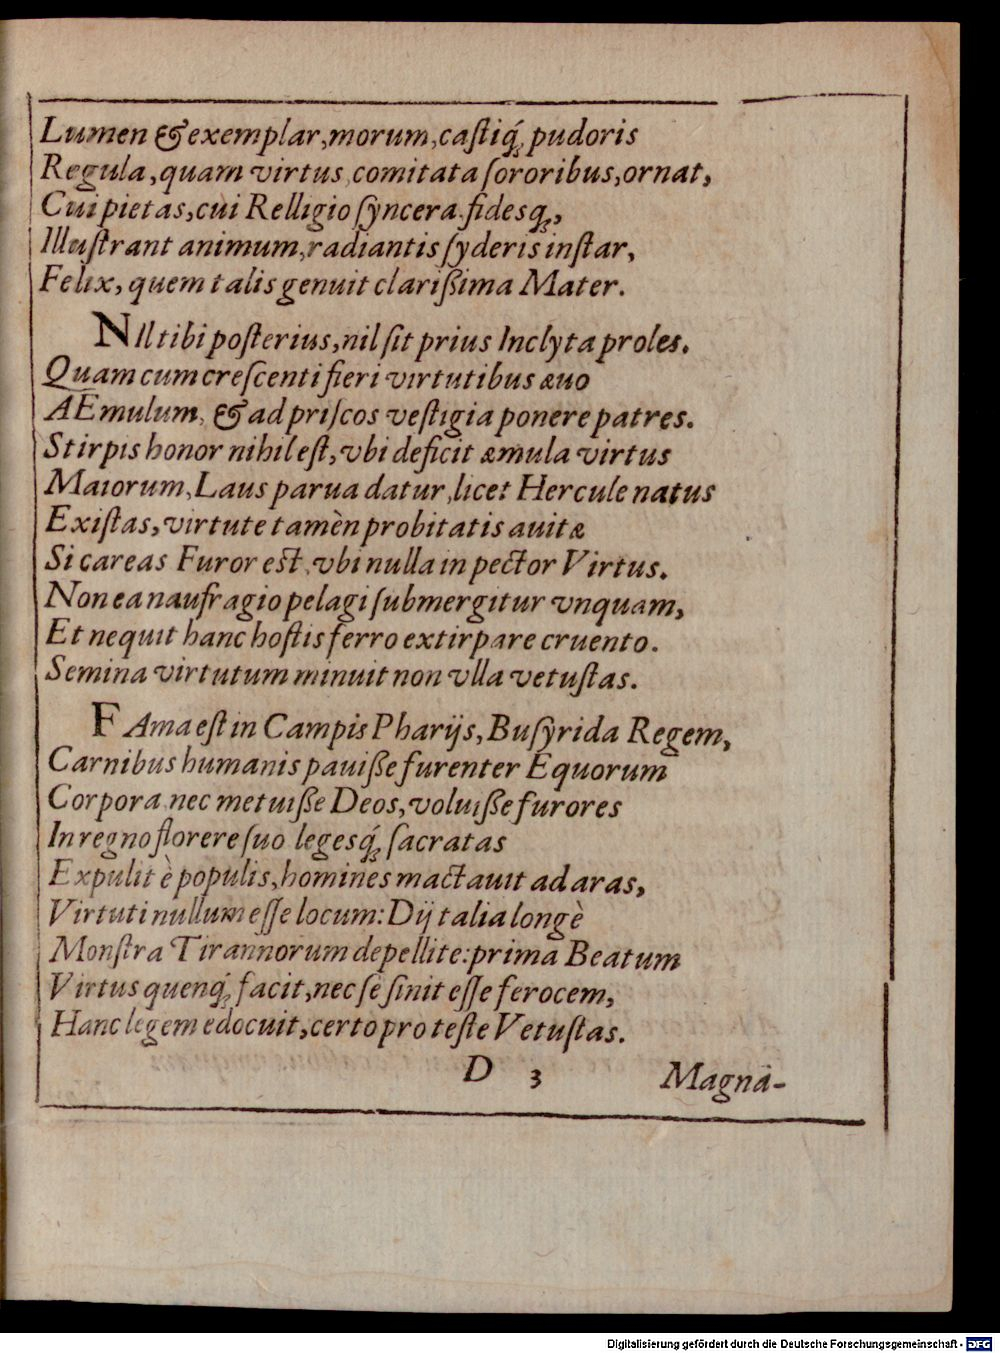 Lumen & exemplar, morum, castiq́; pudoris
Regula, quam virtus, comitata ſororibus, ornat,
Cui pietas, cui Relligio ſyncera fidesq́;,
Illuſtrant animum, radiantis ſyderis inſtar,
Felix, quem talis genuit clarißima Mater.
NIl tibi poſterius, nil ſit prius Inclyta proles.
Quam cum creſcenti fieri virtutibus æuo
AEmulum, & ad priſcos veſtigia ponere patres.
Stirpis honor nihil eſt, vbi deficit æmula virtus
Maiorum, Laus parua datur, licet Hercule natus
Exiſtas, virtute tamèn probitatis auitæ
Si careas Furor eſt, vbi nulla in pector Virtus.
Non ea naufragio pelagi ſubmergitur vnquam,
Et nequit hanc hoſtis ferro extirpare cruento.
Semina virtutum minuit non vlla vetuſtas.
FAma eſt in Campis Pharijs, Buſyrida Regem,
Carnibus humanis pauiße furenter Equorum
Corpora, nec metuiße Deos, voluiße furores
In regno florere ſuo legesq́; ſacratas
Expulit è populis, homines mactauit ad aras,
Virtuti nullum eſſe locum: Dij talia longè
Monſtra Tirannorum depellite: prima Beatum
Virtus quenq́; facit, nec ſe ſinit eſſe ferocem,
Hanc legem edocuit, certo pro teſte Vetuſtas.
D 3 Magna-
Digitalisierung gefördert durch die Deutsche Forschungsgemeinschaft - DFG